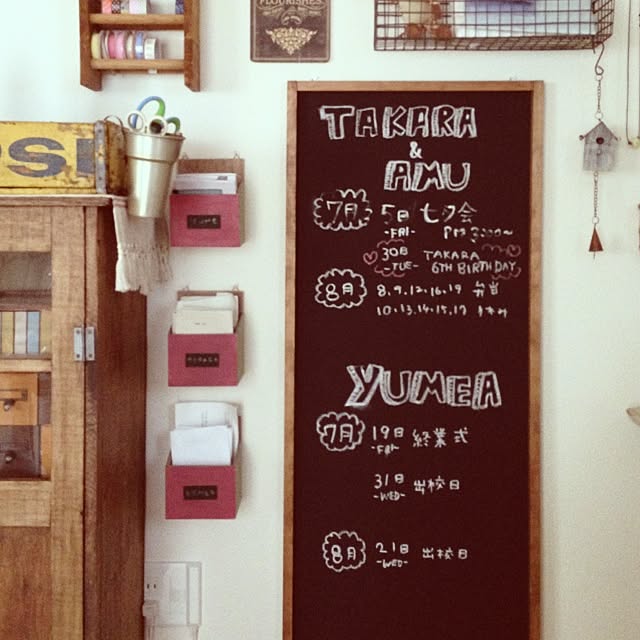 FLOURISHES
TAKARA
&
AMU
7月 5日 七夕会
-FRI- PM 3:00~
30日 TAKARA
-TUE- 6TH BIRTHDAY
8月 8.9.12.16.19 弁当
10.13.14.15.17 休み
YUMEA
7月 19日 終業式
-FRI-
31日 出校日
-WED-
8月 21日 出校日
-WED-